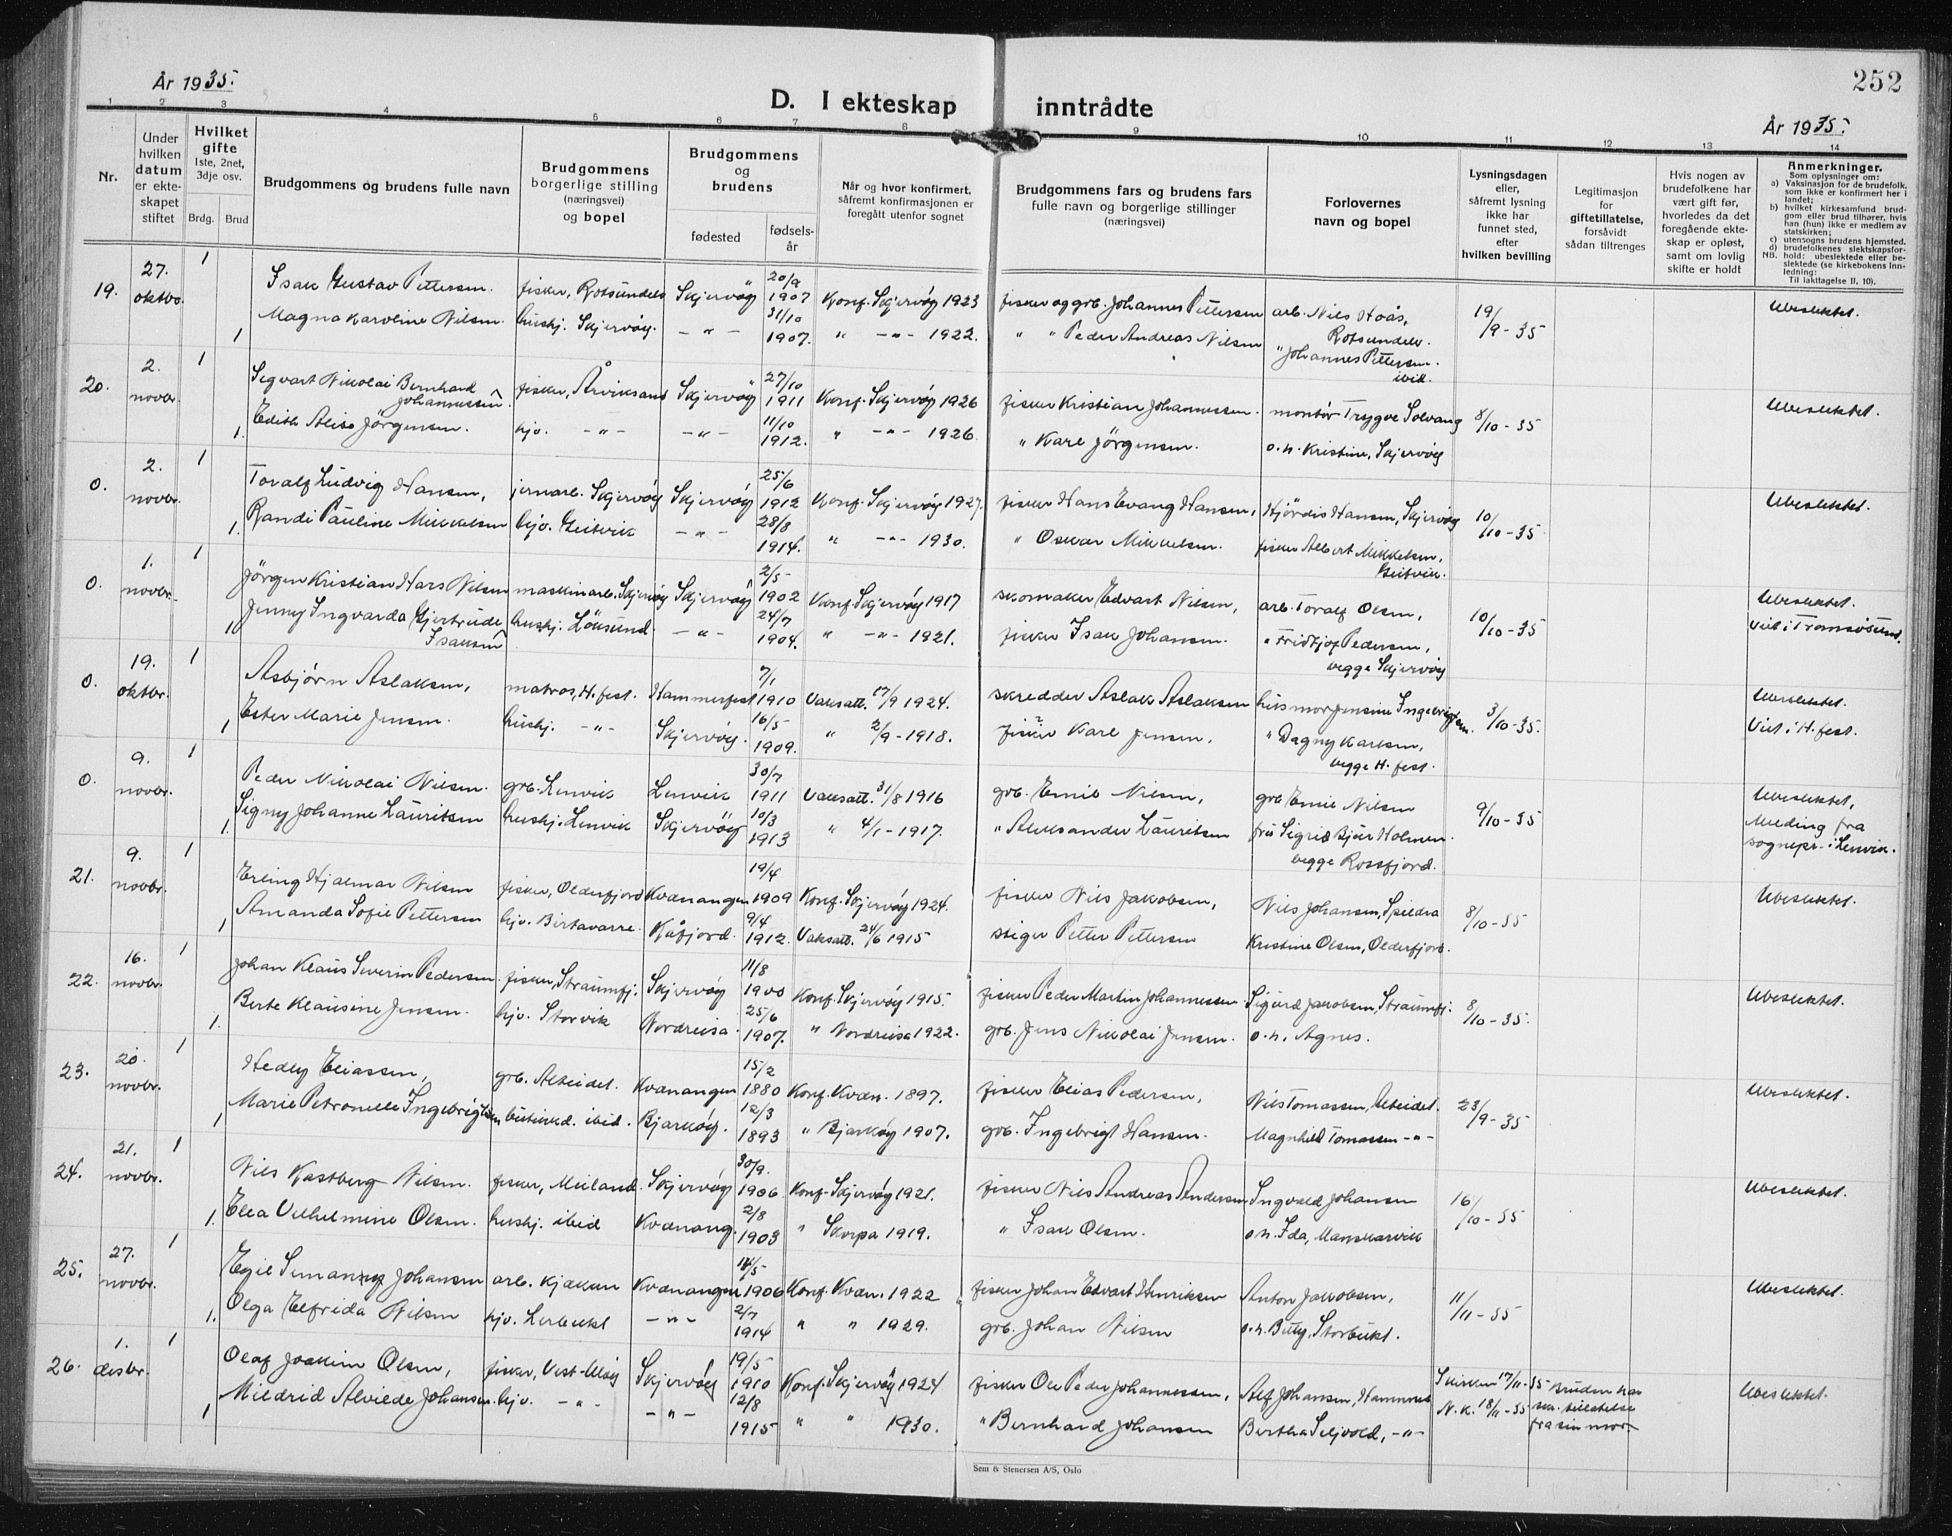 252
År 1935.
D. I ekteskap inntrådte
År 1935.
1 2 3 4 5 6 7 8 9 10 11 12 13 14
Nr.
Under hvilken datum er ekteskapet stiftet
Hvilket gifte
1ste, 2net, 3dje osv.
Brdg. Brud
Brudgommens og brudens fulle navn
Brudgommens borgerlige stilling (næringsvei) og bopel
Brudgommens og brudens
fødested
fødselsår
Når og hvor konfirmert, såfremt konfirmasjonen er foregått utenfor sognet
Brudgommens fars og brudens fars fulle navn og borgerlige stillinger (næringsvei)
Forlovernes navn og bopel
Lysningsdagen eller, såfremt lysning ikke har funnet sted, efter hvilken bevilling
Legitimasjon for giftetillatelse, forsåvidt sådan tiltrenges
Hvis nogen av brudefolkene har vært gift før, hvorledes da det foregående ekteskap er opløst, samt om lovlig skifte er holdt
Anmerkninger.
Som oplysninger om:
a) Vaksinasjon for de brudefolk, som ikke er konfirmert her i landet;
b) hvilket kirkesamfund brudgom eller brud tilhører, hvis han (hun) ikke er medlem av statskirken;
c) utensogns brudens hjemsted.
d) brudefolkenes slektskapsforhold: ubeslektede eller beslektede (se kirkebokens innledning:
NB. Til iakttagelse II, 10).
19. 27. oktbr. 1 Isak Gustav Pettersen. fisker, Rotsundelv Skjervøy 20/9 1907 Konf. Skjervøy 1923 fisker og grb. Johannes Pettersen arb. Nils Hoås, Rotsundelv. 19/9-35 Ubeslektet.
1 Magna Karoline Nilsen. hushj. Skjervøy. -"- 31/10 1907. " -"- 1922. " " Peder Andreas Nilsen " Johannes Pettersen. ibid.
20. 2. novbr. 1 Sigvart Nikolai Bernhard Johannessen. fisker, Årviksand Skjervøy 27/10 1911 Konf. Skjervøy 1926 fisker Kristian Johannessen. montör Trygve Solvang 8/10-35 Ubeslektet.
1. Edith Alise Jörgensen. hjv. -"- -"- 11/10 1912. " -"- 1926. " Karl Jörgensen. o.h. Kristine, Skjervøy
0. 2. novbr. 1 Toralf Ludvig Hansen, jernarb. Skjervøy Skjervøy 25/6 1912 Konf. Skjervøy 1927. fisker Hans Evang Hansen, Hjördis Hansen, Skjervøy 10/10-35 Ubeslektet.
1. Randi Pauline Mikkelsen hjv. Geitvik -"- 28/8 1914. " -"- 1930. " Oskar Mikkelsen. fisker Albert Mikkelsen, Geitvik.
0. 1. novbr. 1 Jörgen Kristian Hars Nilsen maskinarb. Skjervøy Skjervøy 2/5- 1902 Konf. Skjervøy 1917 skomaker Edvart Nilsen, arb. Toralf Olsen, 10/10-35 Ubeslektet.
1 Jenny Ingvarda Gjertrude Isaksen hushj. Löksund. -"- 24/7 1904. " -"- 1921. fisker Isak Johansen. " Fridtjof Pedersen, begge Skjervøy Viet i Tromsøsund.
0. 19. oktbr. 1 Asbjørn Aslaksen, matros, H. fest. Hammerfest 7/1 1910 Vaksatt. 17/9 1924. skredder Aslak Aslaksen husmor Jensine Ingebrigtsen. 3/10-35. Ubeslektet.
1 Ester Marie Jensen. hushj. -"- Skjervøy. 16/5 1909. " 2/9-1918. fisker Karl Jensen, " Dagny Karlsen, begge H. fest. Viet i H. fest.
0. 9. novbr. 1 Peder Nikolai Nilsen. grb. Lenvik Lenvik 30/7 1911 Vaksatt. 31/8 1916 grb. Emil Nilsen, grb Emil Nilsen 9/10-35 Ubeslektet,
1. Signy Johanne Lauritsen hushj. Lenvik Skjervöy 10/3 1913 " 4/1-1917. " Aleksander Lauritsen fru Sigrid Bjur Holmen. begge Rossfjord. Melding fra sognepr. i Lenvik.
21. 9. novbr. 1 Erling Hjalmar Nilsen fisker, Olderfjord Kvænangen 19/4 1909 Konf. Skjervøy 1924. fisker Nils Jakobsen, Nils Johansen, Spildra 8/10-35 Ubeslektet.
1 Amanda Sofie Pettersen hjv. Birtavarre. Kåfjord. 9/4 1912. Vaksatt. 24/6 1915 stiger Petter Pettersen Kristine Olsen, Olderfjord.
22. 16. novbr. 1 Johan Klaus Severin Pedersen. fisker, Straumfj. Skjervøy 11/8 1900 Konf. Skjervøy 1915. fisker Peder Martin Johannessen Sigurd Jakobsen, Straumfj. 8/10-35. Ubeslektet.
1. Berte Klausine Jensen. hjv. Storvik Nordreisa 25/6 1907. " Nordreisa 1922. grb. Jens Nikolai Jensen. o.h. Agnes.
23. 20. novbr. 1 Hedly Eliassen, grb. Alteidet. Kvænangen 15/2 1880 Konf. Kvæn. 1897. fisker Elias Pedersen, Nils Tomassen, Alteidet. 23/9-35 Ubeslektet.
1 Marie Petronelle Ingebrigtsen ibid. Bjarkøy. 12/3 1893 " Bjarkøy 1907. grb. Ingebrigt Hansen. Magnhild Tomassen -"-
24. 21. novbr. 1 Nils Kastberg Nilsen. fisker, Meiland. Skjervøy 30/9. 1906 Konf. Skjervøy 1921. fisker Nils Andreas Andersen Ingvald Johansen 16/10-35 Ubeslektet.
1. Ella Vilhelmine Olsen. hushj. ibid Kvænang. 2/8 1903 " Skorpa 1919. " Isak Olsen. o.h. Ida, Manskarvik
25. 27. novbr. 1 Egil Johansen arb. Kjækan Kvænangen 14/5 1906 Konf. Kvæn. 1922 fisker Johan Edvart Henriksen Anton Jakobsen, 11/11-35 Ubeslektet.
1. Olga Elfrida Nilsen hjv. Lerbukt -"- 2/7 1914 " " 1929. grb. Johan Nilsen o.h. Storbukt.
26. 1. desbr. 1 Olaf Joakim Olsen, fisker, Vest-Uløy Skjervøy 19/5 1910 Konf. Skjervøy 1924 fisker Ole Peder Johannessen, Alf Johansen, Hamnnes Skirker 17/11-35 bruden har Ubeslektet.
1 Mildrid Alvilde Johansen. hjv. -"- -"- 12/8 1915 " " 1930. " Bernhard Johansen Bertha Seljvold, -"- N.K. 18/11-35 skr. tillatelse fra sin mor.
Sem & Stenersen A/S, Oslo